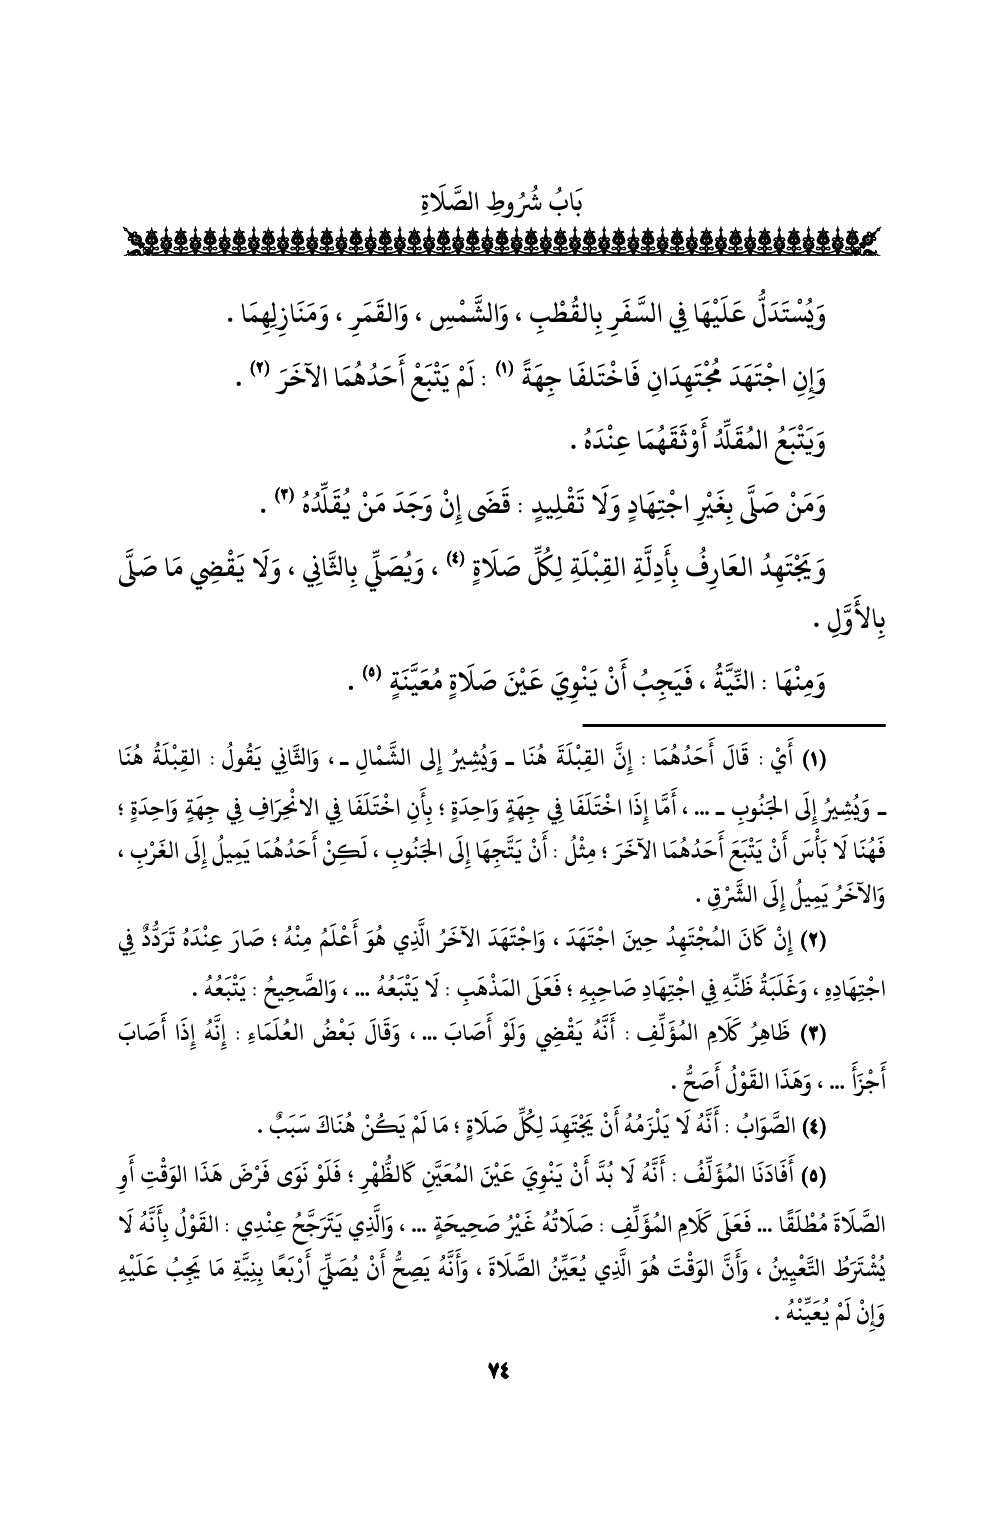 بَابُ شُرُوطِ الصَّلَاةِ
وَيُسْتَدَلُّ عَلَيْهَا فِي السَّفَرِ بِالقُطْبِ ، وَالشَّمْسِ ، وَالقَمَرِ ، وَمَنَازِلِهِمَا .
وَإِنِ اجْتَهَدَ مُجْتَهِدَانِ فَاخْتَلفَا جِهَةً (١) : لَمْ يَتْبَعْ أَحَدُهُمَا الآخَرَ (٢) .
وَيَتْبَعُ المُقَلِّدُ أَوْثَقَهُمَا عِنْدَهُ .
وَمَنْ صَلَّى بِغَيْرِ اجْتِهَادٍ وَلَا تَقْلِيدٍ : قَضَى إِنْ وَجَدَ مَنْ يُقَلِّدُهُ (٣) .
وَيَجْتَهِدُ العَارِفُ بِأَدِلَّةِ القِبْلَةِ لِكُلِّ صَلَاةٍ (٤) ، وَيُصَلِّي بِالثَّانِي ، وَلَا يَقْضِي مَا صَلَّى
بِالأَوَّلِ .
وَمِنْهَا : النِّيَّةُ ، فَيَجِبُ أَنْ يَنْوِيَ عَيْنَ صَلَاةٍ مُعَيَّنَةٍ (٥) .
(١) أَيْ : قَالَ أَحَدُهُمَا : إِنَّ القِبْلَةَ هُنَا ـ وَيُشِيرُ إِلى الشَّمْالِ ـ ، وَالثَّانِي يَقُولُ : القِبْلَةُ هُنَا
ـ وَيُشِيرُ إِلَى الجَنُوبِ ـ ... ، أَمَّا إِذَا اخْتَلَفَا فِي جِهَةٍ وَاحِدَةٍ ؛ بِأَنِ اخْتَلَفَا فِي الانْحِرَافِ فِي جِهَةٍ وَاحِدَةٍ ؛
فَهُنَا لَا بَأْسَ أَنْ يَتْبَعَ أَحَدُهُمَا الآخَرَ ؛ مِثْلُ : أَنْ يَتَّجِهَا إِلَى الجَنُوبِ ، لَكِنْ أَحَدُهُمَا يَمِيلُ إِلَى الغَرْبِ ،
وَالآخَرُ يَمِيلُ إِلَى الشَّرْقِ .
(٢) إِنْ كَانَ المُجْتَهِدُ حِينَ اجْتَهَدَ ، وَاجْتَهَدَ الآخَرُ الَّذِي هُوَ أَعْلَمُ مِنْهُ ؛ صَارَ عِنْدَهُ تَرَدُّدٌ فِي
اجْتِهَادِهِ ، وَغَلَبَةُ ظَنِّهِ فِي اجْتِهَادِ صَاحِبِهِ ؛ فَعَلَى المَذْهَبِ : لَا يَتْبَعُهُ ... ، وَالصَّحِيحُ : يَتْبَعُهُ .
(٣) ظَاهِرُ كَلَامِ المُؤَلِّفِ : أَنَّهُ يَقْضِي وَلَوْ أَصَابَ ... ، وَقَالَ بَعْضُ العُلَمَاءِ : إِنَّهُ إِذَا أَصَابَ
أَجْزَأَ ... ، وَهَذَا القَوْلُ أَصَحُّ .
(٤) الصَّوَابُ : أَنَّهُ لَا يَلْزَمُهُ أَنْ يَجْتَهِدَ لِكُلِّ صَلَاةٍ ؛ مَا لَمْ يَكُنْ هُنَاكَ سَبَبٌ .
(٥) أَفَادَنَا المُؤَلِّفُ : أَنَّهُ لَا بُدَّ أَنْ يَنْوِيَ عَيْنَ المُعَيَّنِ كَالظُّهْرِ ؛ فَلَوْ نَوَى فَرْضَ هَذَا الوَقْتِ أَوِ
الصَّلَاةَ مُطْلَقًا ... فَعَلَى كَلَامِ المُؤَلِّفِ : صَلَاتُهُ غَيْرُ صَحِيحَةٍ ... ، وَالَّذِي يَتَرَجَّحُ عِنْدِي : القَوْلُ بِأَنَّهُ لَا
يُشْتَرَطُ التَّعْيِينُ ، وَأَنَّ الوَقْتَ هُوَ الَّذِي يُعَيِّنُ الصَّلَاةَ ، وَأَنَّهُ يَصِحُّ أَنْ يُصَلِّيَ أَرْبَعًا بِنِيَّةِ مَا يَجِبُ عَلَيْهِ
وَإِنْ لَمْ يُعَيِّنْهُ .
٧٤